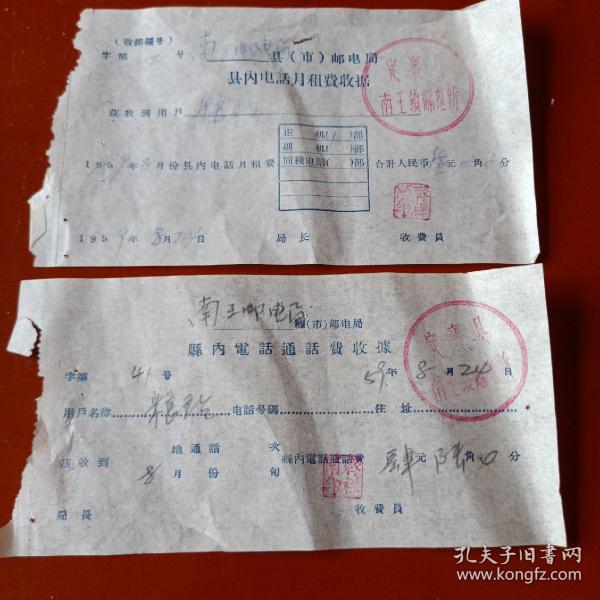 （收据编号）
字第 号 南王邮电所 县（市）邮电局
县内电話月租費收据
定襄县
南王鎮邮电所
茲收到用戶
正 机( )部
副 机( )部
同綫电話( )部
1959年8月份县内电話月租費 合計人民币 叁元 角 分
1959年8月24日 局长 收費員
南王邮电所 縣(市)邮电局
定襄县
縣內電話通話費收據
字第 41 号 59年 8 月 24 日
用戶名称 电話号碼 住址
茲收到 地通話 次 縣内電話通話費 肆元 角 0 分
8 月份 旬
局長 收費員
孔夫子旧书网
www.kongfz.com